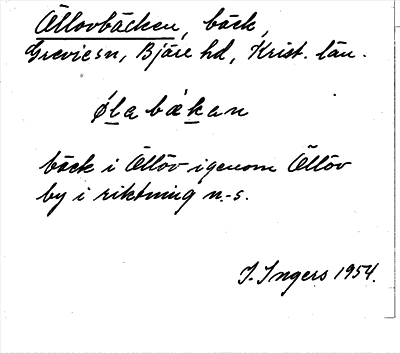 Öllovbäcken, bäck,
Greviesn, Bjäre hd, Krist. län.
ø̀la bækan
bäck i Öllöv igenom Öllöv
by i riktning n.-s.
I. Ingers 1954.